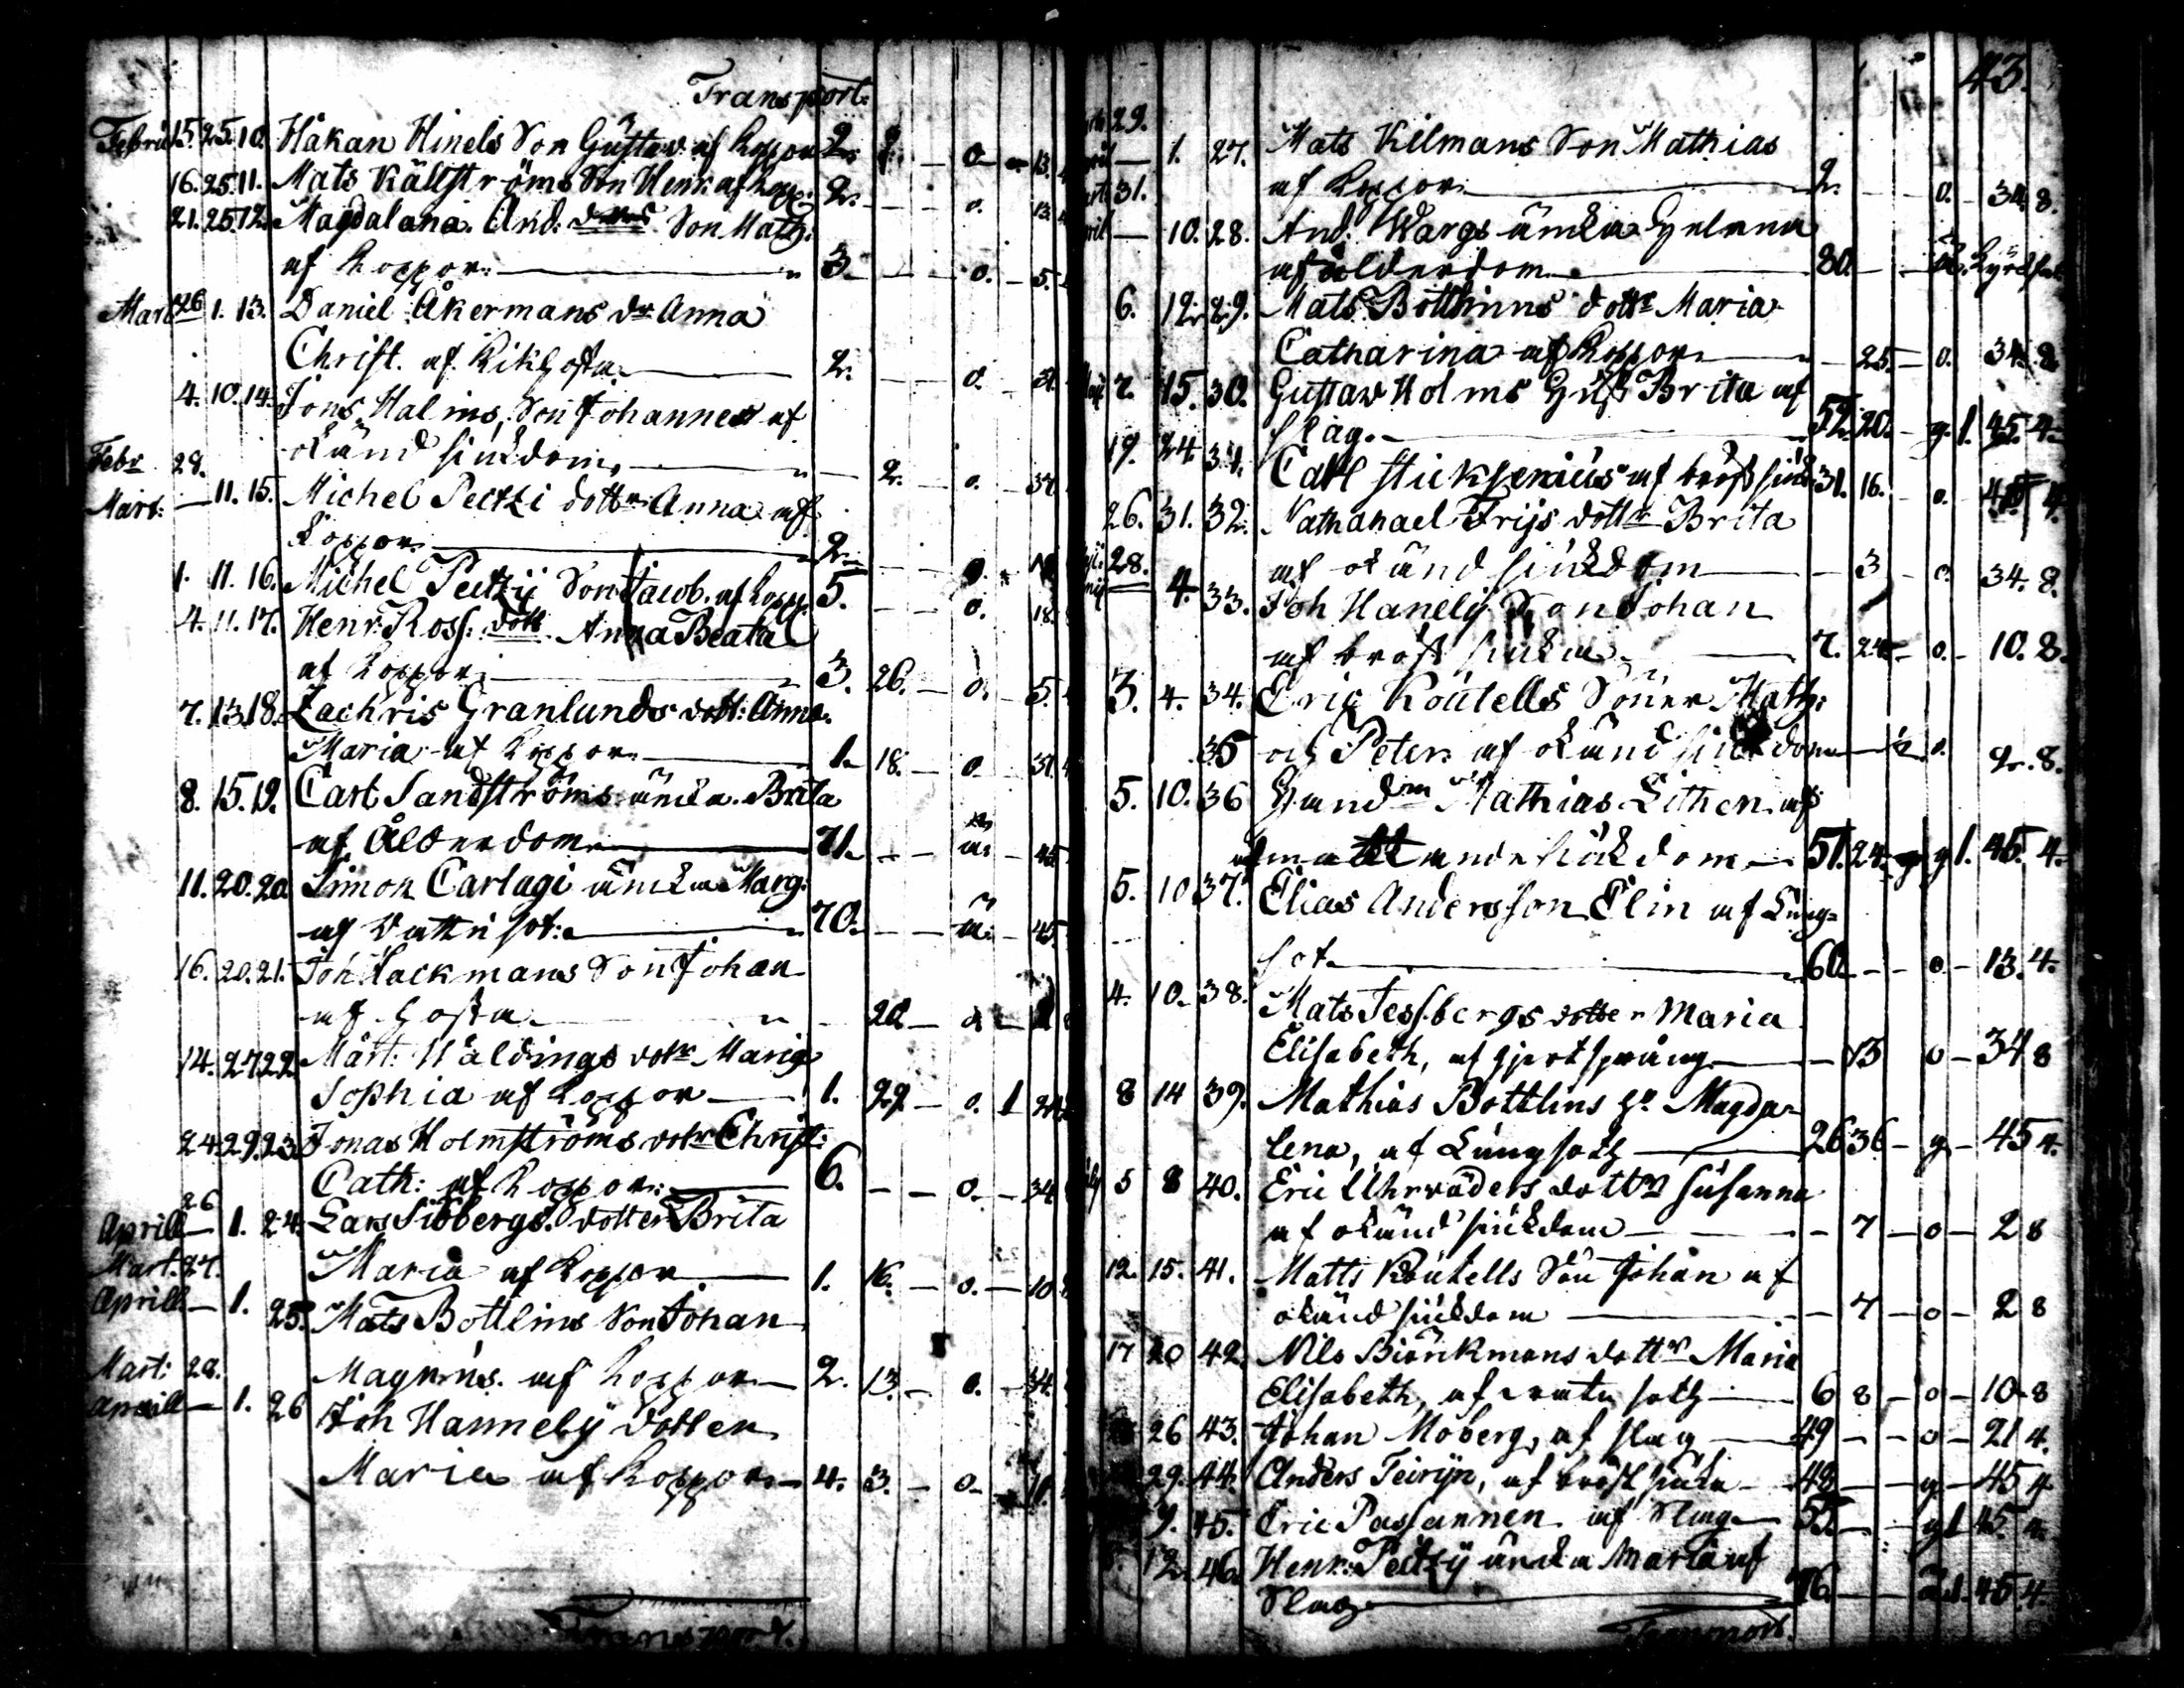 Transport:
Febru 15. 25. 10. Håkan Hinels Son Gustav: af koppor 2. 0. 13.
16. 25. 11. Mats Källströms Son Henr: af kopp: 2. 0. 13.
21. 25. 12. Magdalana And: Son Math:
af koppor. 3. 0. 5.
Mart 26 1. 13. Daniel Åkermans dr Anna
Christ. af kikhosta 2. 0.
4. 10. 14. Jons Halms Son Johannes af
okänd siukdom, 2. 0. 34.
Febr 28.
Mart: 11. 15. Michel Peitzi dottr Anna af
koppor 2.
1. 11. 16. Michel Peitzij Son Jacob. af kopp. 5. 0. 18.
4. 11. 17. Henr: Ross: dott. Anna Beata
af koppor 3. 26. 0. 5.
7. 13. 18. Zachris Granlunds dott: Anna
Maria af koppor 1. 18. 0. 34.
8. 15. 19. Carl Sandströms änka Brita
af Ålderdom 71. 45.
11. 20. 20. Simon Carlagi änka Marg:
af vattu sot: 70. 45.
16. 20. 21. Joh Hackmans Son Johan
af hosta 20.
14. 27. 22. Mårt: Wäldings dotr Maria
Sophia af koppor 1. 29. 0. 1
24. 29. 23. Jonas Holmströms dotr Christ:
Cath: af koppor 6. 0. 34
26
Aprill 1. 24. Lars Sibbergs dotter Brita
Maria af koppor 1. 16. 0. 10
Mart. 27.
Aprill 1. 25. Mats Bottlins Son Johan
Magnus. af koppor 2. 13. 0. 34.
Mart:
Aprill 1. 26 Joh Hannelij dotter
Maria af koppor 4. 3. 0.
Transport.
43.
29.
1. 27. Mats Kilmans Son Mathias
af koppor 2. 0. 34. 8.
31.
10. 28. And: Wargs änka Helena
af ålderdom 80.
6. 12. 29. Mats Bottlinns dottr Maria
Catharina af koppor 25. 0. 34. 8
7. 15. 30. Gustav Holms Hust Brita af
slag. 52. 20. g. 1. 45. 4.
19. 24 31. Carl Stickserius af bröst siuk 31. 16. 0. 4.
26. 31. 32. Nathanael Frijs dottr Brita
af okänd siukdom 3 0. 34. 8.
28.
4. 33. Joh Hanelij Son Johan
af bröst siuka 7. 24. 0. 10. 8.
3. 4. 34. Eric Koutells Söner Math:
35 och Peter af okänd siukdom ½ 0. 2. 8.
5. 10. 36 Handm Mathias Lithen af
mattande siukdom 51. 24. g 1. 45. 4.
5. 10 37. Elias Andersson Elin af Lung-
sot 60. 0. 13. 4.
4. 10. 38. Mats Tessbergs dotter Maria
Elisabeth, af hjertsprång 13 0 34 8
8 14 39. Mathias Bottlins hu Magda-
lena, af Lungsoth 26 36 g 45 4.
5 8 40. Eric Uhrväders dottr Susanna
af okänd siukdom 7 0 2 8
12. 15. 41. Matts Koutells Son Johan af
okänd siukdom 7 0 2 8
17 20 42. Nils Biörkmans dottr Maria
Elisabeth, af soth 6 8 0 10 8
26 43. Johan Moberg, af slag 49 0 21 4.
29. 44. Anders Teirijn, af bröst siuka 48 g 45 4
9. 45. Eric Passannen af Slag 55. g 1 45. 4.
12. 46. Henr: Peitzij änka Maria af
Slag 76. 45. 4.
Transport.